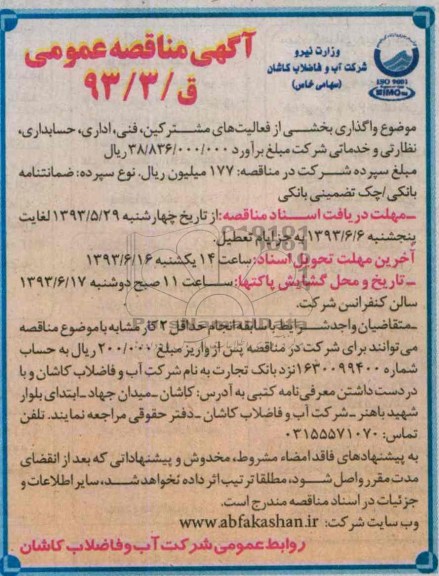 آگهی مناقصه عمومی
ق/۹۳/۳
وزارت نیرو
شرکت آب و فاضلاب کاشان
(سهامی خاص)
ISO 9001
موضوع واگذاری بخشی از فعالیت‌های مشترکین، فنی، اداری، حسابداری،
نظارتی و خدماتی شرکت مبلغ برآورد ۳۸/۸۳۶/۰۰۰/۰۰۰ ریال
مبلغ سپرده شرکت در مناقصه: ۱۷۷ میلیون ریال. نوع سپرده: ضمانتنامه
بانکی/چک تضمینی بانکی
ـ مهلت دریافت اسناد مناقصه: از تاریخ چهارشنبه ۱۳۹۳/۵/۲۹ لغایت
پنجشنبه ۱۳۹۳/۶/۶ به جز ایام تعطیل.
آخرین مهلت تحویل اسناد: ساعت ۱۴ یکشنبه ۱۳۹۳/۶/۱۶
ـ تاریخ و محل گشایش پاکتها: ساعت ۱۱ صبح دوشنبه ۱۳۹۳/۶/۱۷
سالن کنفرانس شرکت.
ـ متقاضیان واجد شرایط با سابقه انجام حداقل ۲ کار مشابه با موضوع مناقصه
می‌توانند برای شرکت در مناقصه پس از واریز مبلغ ۲۰۰/۰۰۰ ریال به حساب
شماره ۱۶۳۰۰۹۹۴۰۰ نزد بانک تجارت به نام شرکت آب و فاضلاب کاشان و با
در دست داشتن معرفی‌نامه کتبی به آدرس: کاشان ـ میدان جهاد ـ ابتدای بلوار
شهید باهنر ـ شرکت آب و فاضلاب کاشان ـ دفتر حقوقی مراجعه نمایند. تلفن
تماس: ۰۳۱۵۵۵۷۱۰۷۰
به پیشنهادهای فاقد امضاء مشروط، مخدوش و پیشنهاداتی که بعد از انقضای
مدت مقرر واصل شود، مطلقا ترتیب اثر داده نخواهد شد، سایر اطلاعات و
جزئیات در اسناد مناقصه مندرج است.
وب سایت شرکت: www.abfakashan.ir
روابط عمومی شرکت آب و فاضلاب کاشان